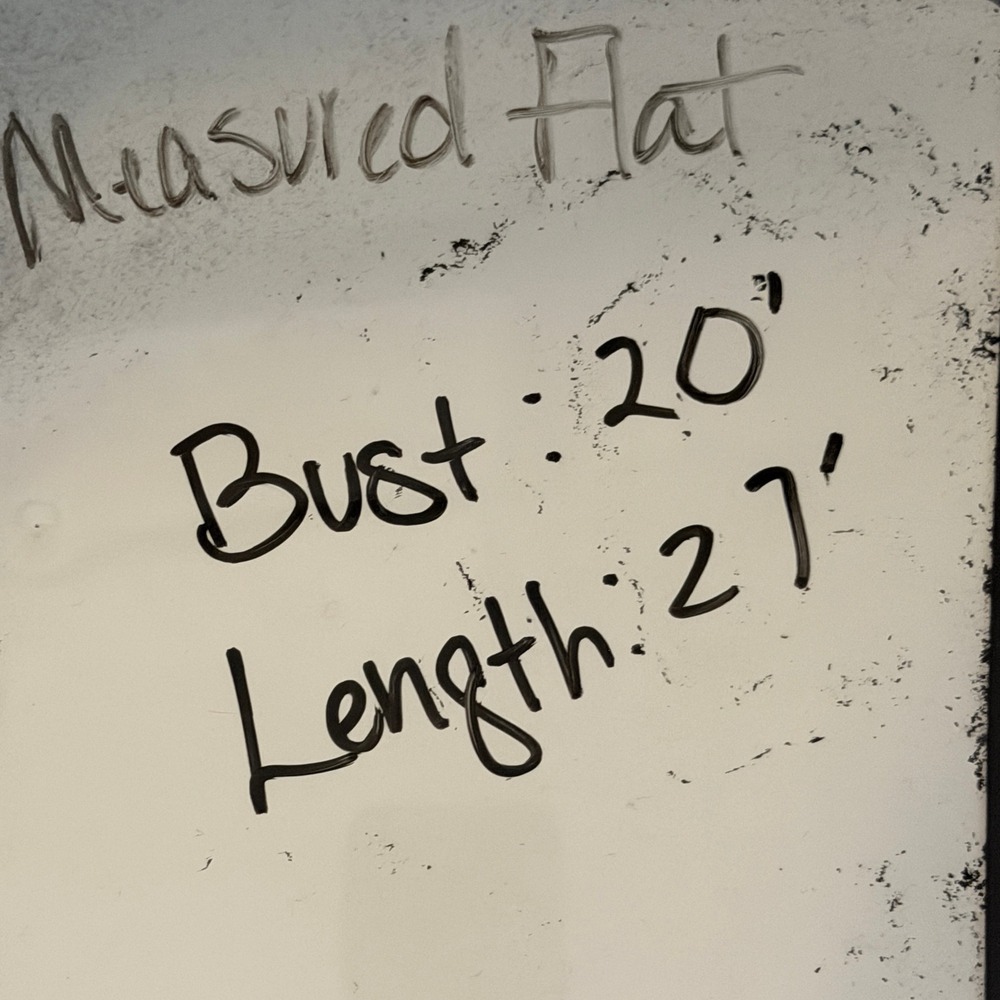 Measured Flat
Bust: 20'
Length: 27'